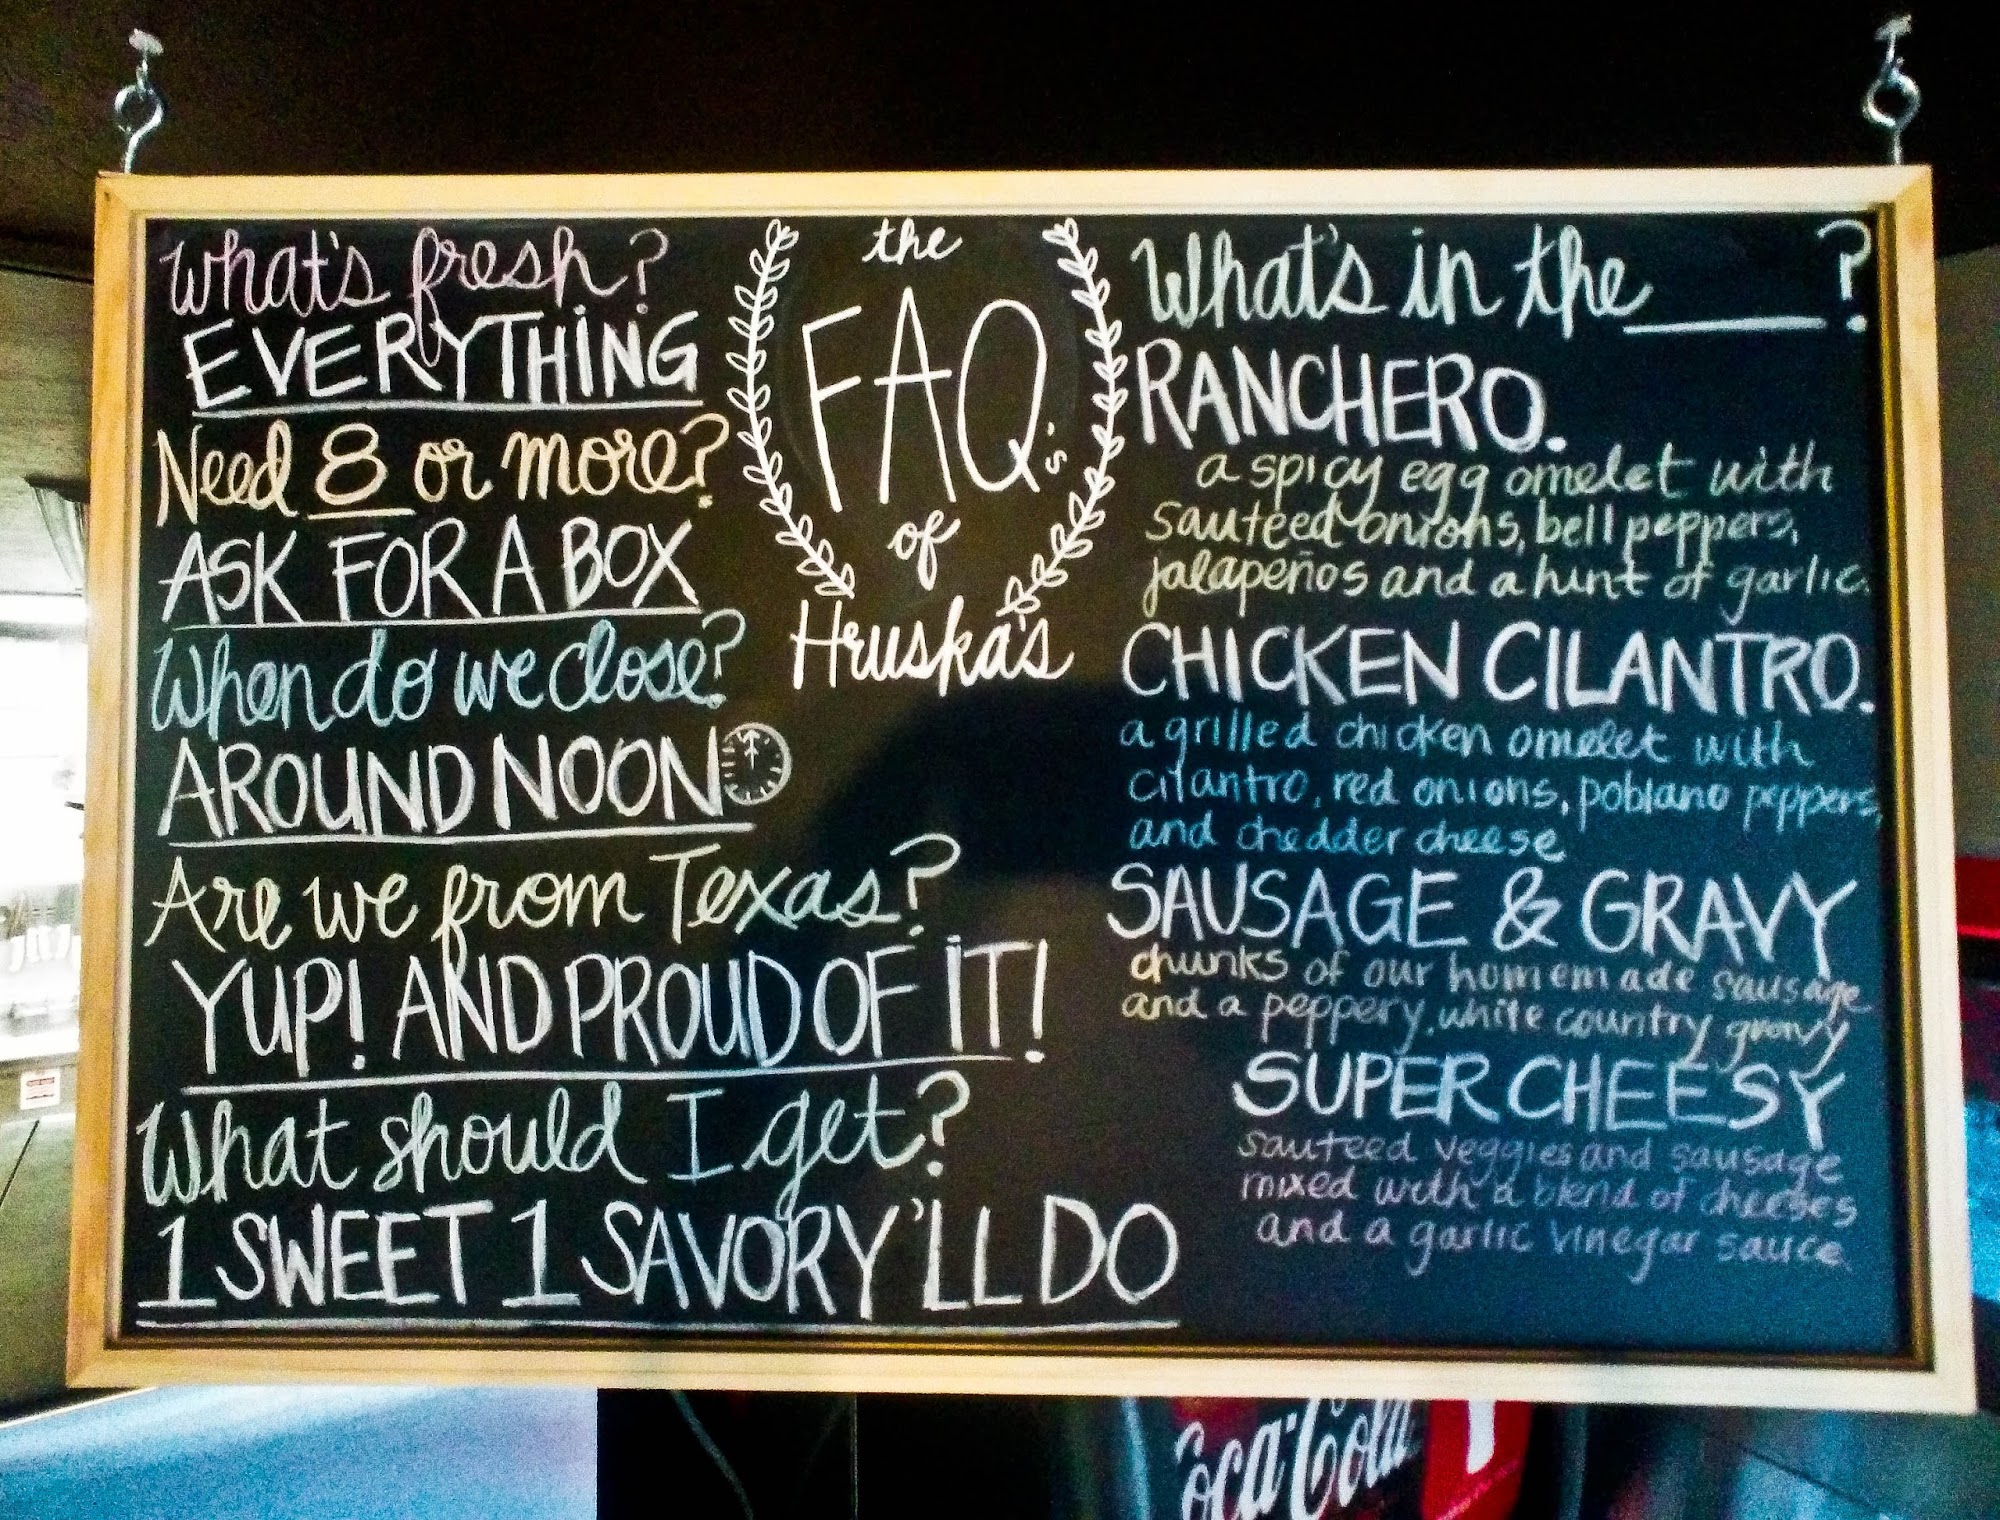 What's fresh?
EVERYTHING
Need 8 or more?
ASK FOR A BOX
When do we close?
AROUND NOON
Are we from Texas?
YUP! AND PROUD OF IT!
What should I get?
1 SWEET 1 SAVORY 'LL DO
the
FAQ's
of
Hruska's
What's in the ____?
RANCHERO.
a spicy egg omelet with
sauteed onions, bell peppers,
jalapeños and a hint of garlic.
CHICKEN CILANTRO.
a grilled chicken omelet with
cilantro, red onions, poblano peppers,
and chedder cheese
SAUSAGE & GRAVY
chunks of our homemade sausage
and a peppery, white country gravy
SUPER CHEESY
sauteed veggies and sausage
mixed with a blend of cheeses
and a garlic vinegar sauce
Coca-Cola